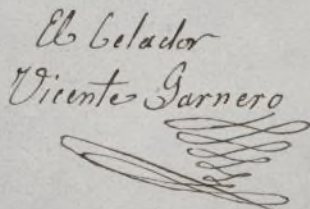 El Celador
Vicente Garnero